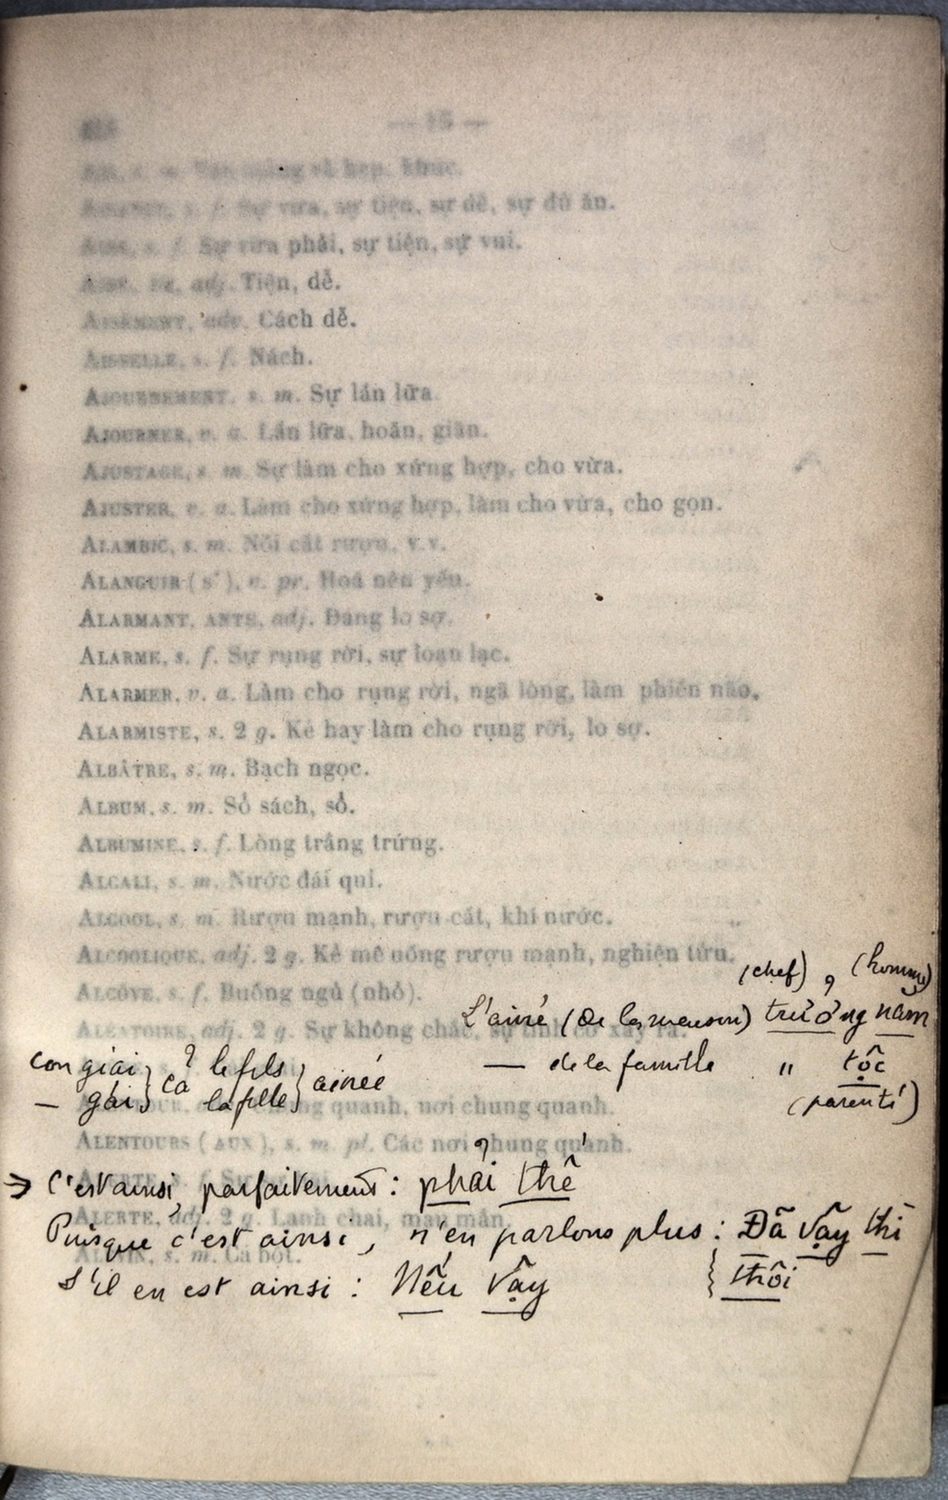 — 15 —
Sự vừa, sự tiện, sự dễ, sự đủ ăn.
s. f. Sự vừa phải, sự tiện, sự vui.
adj. Tiện, dễ.
AISÉMENT, adv. Cách dễ.
AISSELLE, s. f. Nách.
AJOURNEMENT, s. m. Sự lần lữa.
AJOURNER, v. a. Lần lữa, hoãn, giãn.
AJUSTAGE, s. m. Sự làm cho xứng hợp, cho vừa.
AJUSTER, v. a. Làm cho xứng hợp, làm cho vừa, cho gọn.
ALAMBIC, s. m. Nồi cất rượu, v.v.
ALANGUIR (s'), v. pr. Hoá nên yếu.
ALARMANT, ANTE, adj. Đáng lo sợ.
ALARME, s. f. Sự rụng rời, sự loạn lạc.
ALARMER, v. a. Làm cho rụng rời, ngã lòng, làm phiền não.
ALARMISTE, s. 2 g. Kẻ hay làm cho rụng rời, lo sợ.
ALBÂTRE, s. m. Bạch ngọc.
ALBUM, s. m. Sổ sách, sổ.
ALBUMINE, s. f. Lòng trắng trứng.
ALCALI, s. m. Nước đái quỉ.
ALCOOL, s. m. Rượu mạnh, rượu cất, khí nước.
ALCOOLIQUE, adj. 2 g. Kẻ mê uống rượu mạnh, nghiện tửu.
(chef), (homme)
ALCÔVE, s. f. Buồng ngủ (nhỏ).
L'ainé (de la maison) trưởng nam
ALÉATOIRE, adj. 2 g. Sự không chắc,
— de la famille " tộc
con giai } cả le fils } ainée
— gái } la fille }
(parenté)
quanh, nơi chung quanh.
ALENTOURS (AUX), s. m. pl. Các nơi chung quanh.
→ C'est ainsi, parfaitement : phải thế
ALERTE, adj. 2 g. Lanh chai, mau mắn.
Puisque c'est ainsi, n'en parlons plus : Đã vậy thì
s. m. Cá bột.
thôi
S'il en est ainsi : Nếu vậy